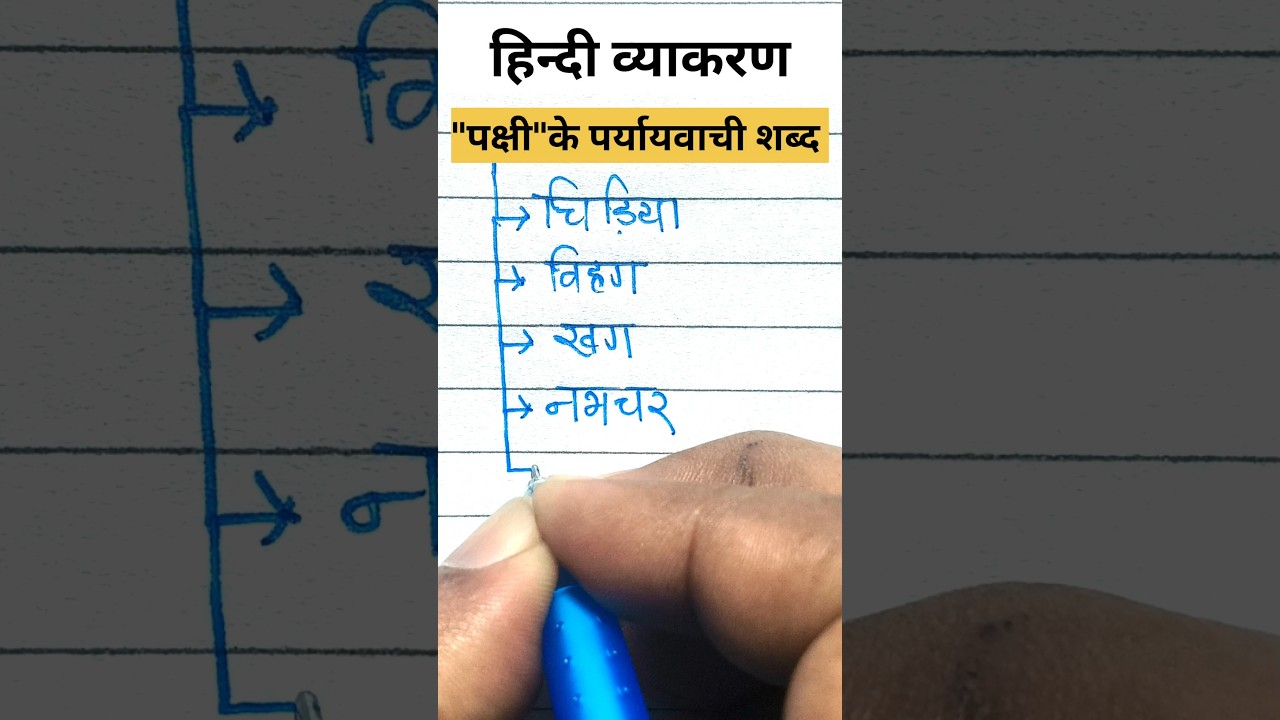 हिन्दी व्याकरण
"पक्षी"के पर्यायवाची शब्द
चिड़िया
विहग
खग
नभचर